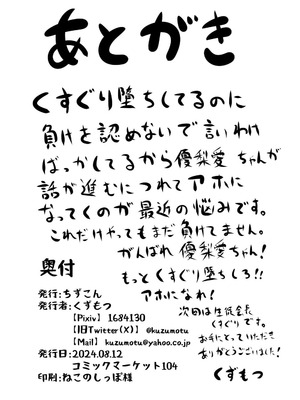 あとがき
くすぐり墮ちしてるのに
負けを認めないで言いわけ
ばっかしてるから優梨愛ちゃんが
話が進むにつれてアホに
なってくのが最近の悩みです。
これだけやってもまだ負けてません。
がんばれ優梨愛ちゃん!
もっとくすぐり墮ちしろ!!
アホになれ!
次回は生徒会長
くすぐりです。
お手にとっていただき
ありがとうございました!
くすもつ
奥付
発行:ちずこん
発行者:くずもつ
【Pixiv】 1684130
【旧Twitter(X)】 @kuzumotu
【Mail】 kuzumotu@yahoo.co.jp
発行日:2024.08.12
コミックマーケット104
印刷:ねこのしっぽ様